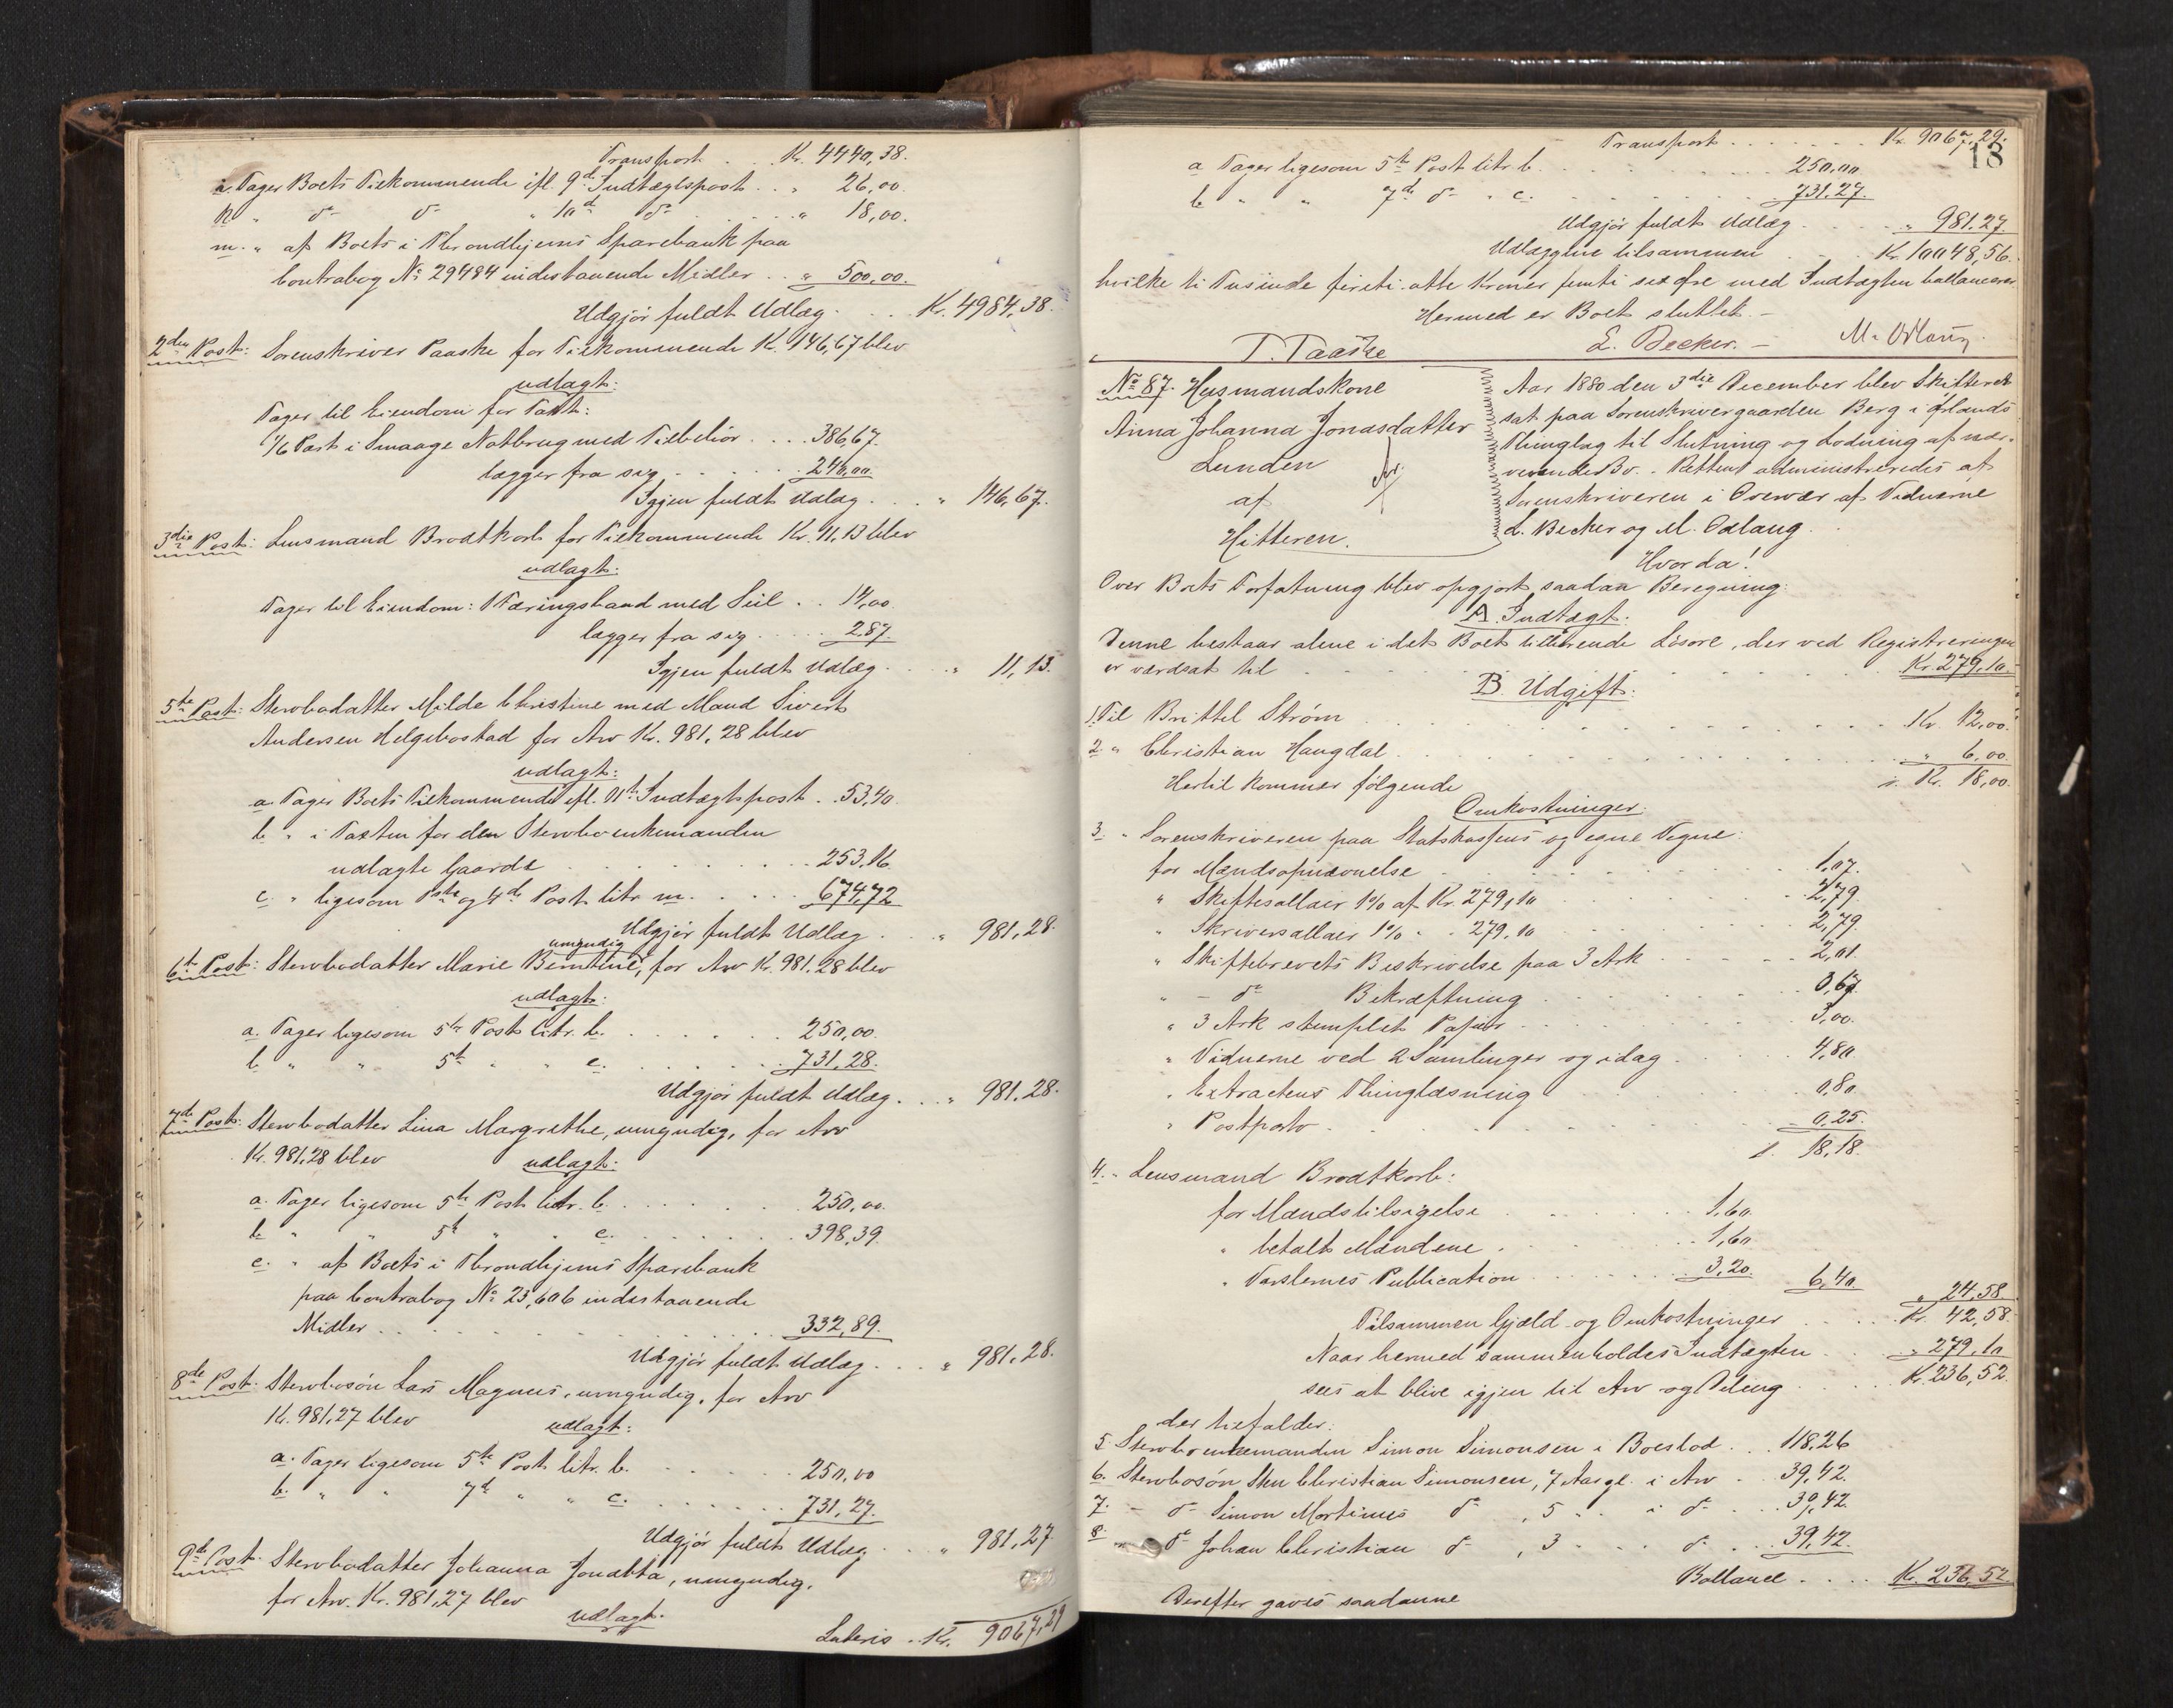 Transport . . Kr. 4440,38.
i. Tager Boets Tilkommende ifl. 9d Indtægtspost . . „ 26,00.
k „ do do „ 10d do . . . . „ 18,00.
m. „ af Boets i Throndhjems Sparebank paa
Contrabog No 29484 indestaaende Midler . . „ 500,00.
Udgjør fuldt Udlæg . . . Kr. 4984,38.
2den Post: Sorenskriver Paaske for Tilkommende Kr. 146,67 blev
udlagt:
Tager til Eiendom for Taxt:
1/6 Part i Smaage Notbrug med Tilbehør . . . 386,67.
lægger fra sig . . . . . 240,00.
Igjen fuldt Udlæg . . . „ 146,67.
3die Post: Lensmand Brodtkorb for Tilkommende Kr. 11,13 blev
udlagt:
Tager til Eiendom: 1 Færingsbaad med Seil . . 14,00.
lægger fra sig . . . . 2,87.
Igjen fuldt Udlæg . . . . „ 11,13.
5te Post: Stervbodatter Milde Christine med Mand Sivert
Andersen Helgebostad for Arv Kr. 981,28 blev
udlagt:
a. Tager Boets Tilkommende ifl. 11te Indtægtspost . . 53,40.
b. „ i Taxten for den Stervboenkemanden
udlagte Gaarde . . . . 253,16.
c. „ ligesom 1ste og 4de Post litr. m. . . . . 674,72
Udgjør fuldt Udlæg . . „ 981,28.
umyndig
6te Post: Stervbodatter Marie Berntine, for Arv Kr. 981,28 blev
udlagt:
a. Tager ligesom 5te Post litr. b. . . . . . 250,00.
b. „ „ 5te „ „ c. . . . . . 731,28.
Udgjør fuldt Udlæg . . . „ 981,28.
7de Post: Stervbodatter Lina Margrethe, umyndig, for Arv
Kr. 981,28 blev udlagt:
a. Tager ligesom 5te Post litr. b. . . . . . 250,00.
b. „ „ 5te „ „ c. . . . . . 398,39.
c. „ af Boets i Throndhjems Sparebank
paa Contrabog No 23,606 indestaaende
Midler . . . . . . . . 332,89.
Udgjør fuldt Udlæg . . . „ 981,28.
8de Post: Stervbosøn Lars Magnus, umyndig, for Arv
Kr. 981,27 blev udlagt:
a. Tager ligesom 5te Post litr. b. . . . . . 250,00
b. „ „ 7de „ „ c. . . . . . 731,27.
Udgjør fuldt Udlæg . . „ 981,27.
9de Post: Stervbodatter Johanna Jonetta, umyndig,
for Arv. Kr. 981,27 blev
udlagt.
Lateris . . Kr. 9067,29
18
Transport . . . . . . . Kr. 9067,29.
a Tager ligesom 5te Post litr. b. . . . . . 250,00.
b „ „ 7de do „ c. . . . . . 731,27.
Udgjør fuldt Udlæg . . . . „ 981,27.
Udlæggene tilsammen . . Kr. 10048,56.
hvilke ti Tusinde firti otte Kroner femti sex Øre med Indtægten ballancerer.
Hermed er Boet sluttet. –
T. Paaske L. Becker. – M. Odlaug.
No 87. Husmandskone
Anna Johanna Jonasdatter
Lunden
af
Hitteren.
Aar 1880 den 3die December blev Skifteret
sat paa Sorenskrivergaarden Berg i Ørlands
Thinglag til Slutning og Lodning af nær-
værende Bo. – Retten administreredes af
Sorenskriveren i Overvær af Vidnerne
L. Becker og M. Odlaug.
Hvorda!
Over Boets Forfatning blev opgjort saadan Beregning:
A. Indtægt:
Denne bestaar alene i det Boet tilhørende Løsøre, der ved Registreringen
er værdsat til . . . . . . Kr. 279,10.
B. Udgift:
1. Til Brittel Strøm . . . . . . Kr. 12,00.
2. „ Christian Haugdal . . . . . . „ 6,00.
Hertil kommer følgende s. Kr. 18,00.
Omkostninger.
3. „ Sorenskriveren paa Statskassens og egne Vegne:
for Mændsopnævnelse . . . . 1,07.
„ Skiftesallair 1% af Kr. 279,10 . . . . 2,79
„ Skriversallair 1% „ „ 279,10 . . . . 2,79.
„ Skiftebrevets Beskrivelse paa 3 Ark . . . . 2,01.
„ – do Bekræftning . . . . 0,67.
„ 3 Ark stemplet Papir . . . . 3,00.
„ Vidnerne ved 2 Samlinger og idag . . . . 4,80.
„ Extractens Thinglæsning . . . . 0,80.
„ Postporto . . . . 0,25.
s. 18,18.
4. „ Lensmand Brodtkorb:
for Mændstilsigelse . . . . 1,60.
„ betalt Mændene . . . . 1,60.
„ Varslernes Publication . . . . 3,20. 6,40 „ 24,58.
Tilsammen Gjæld og Omkostninger . . . . Kr. 42,58.
Naar hermed sammenholdes Indtægten . . „ 279,10
sees at blive igjen til Arv og Deling . . Kr. 236,52.
der tilfalder:
5. Stervboenkemanden Simon Simonsen i Boeslod . . 118,26
6. Stervbosøn Sten Christian Simonsen, 7 Aar gl. i Arv . . 39,42.
7. – do Simon Mortinus do , 5 „ „ i do . . 39,42.
8. – do Johan Christian do , 3 „ „ „ do . . 39,42.
Ballance . . . . Kr. 236,52
Derefter gaves saadanne